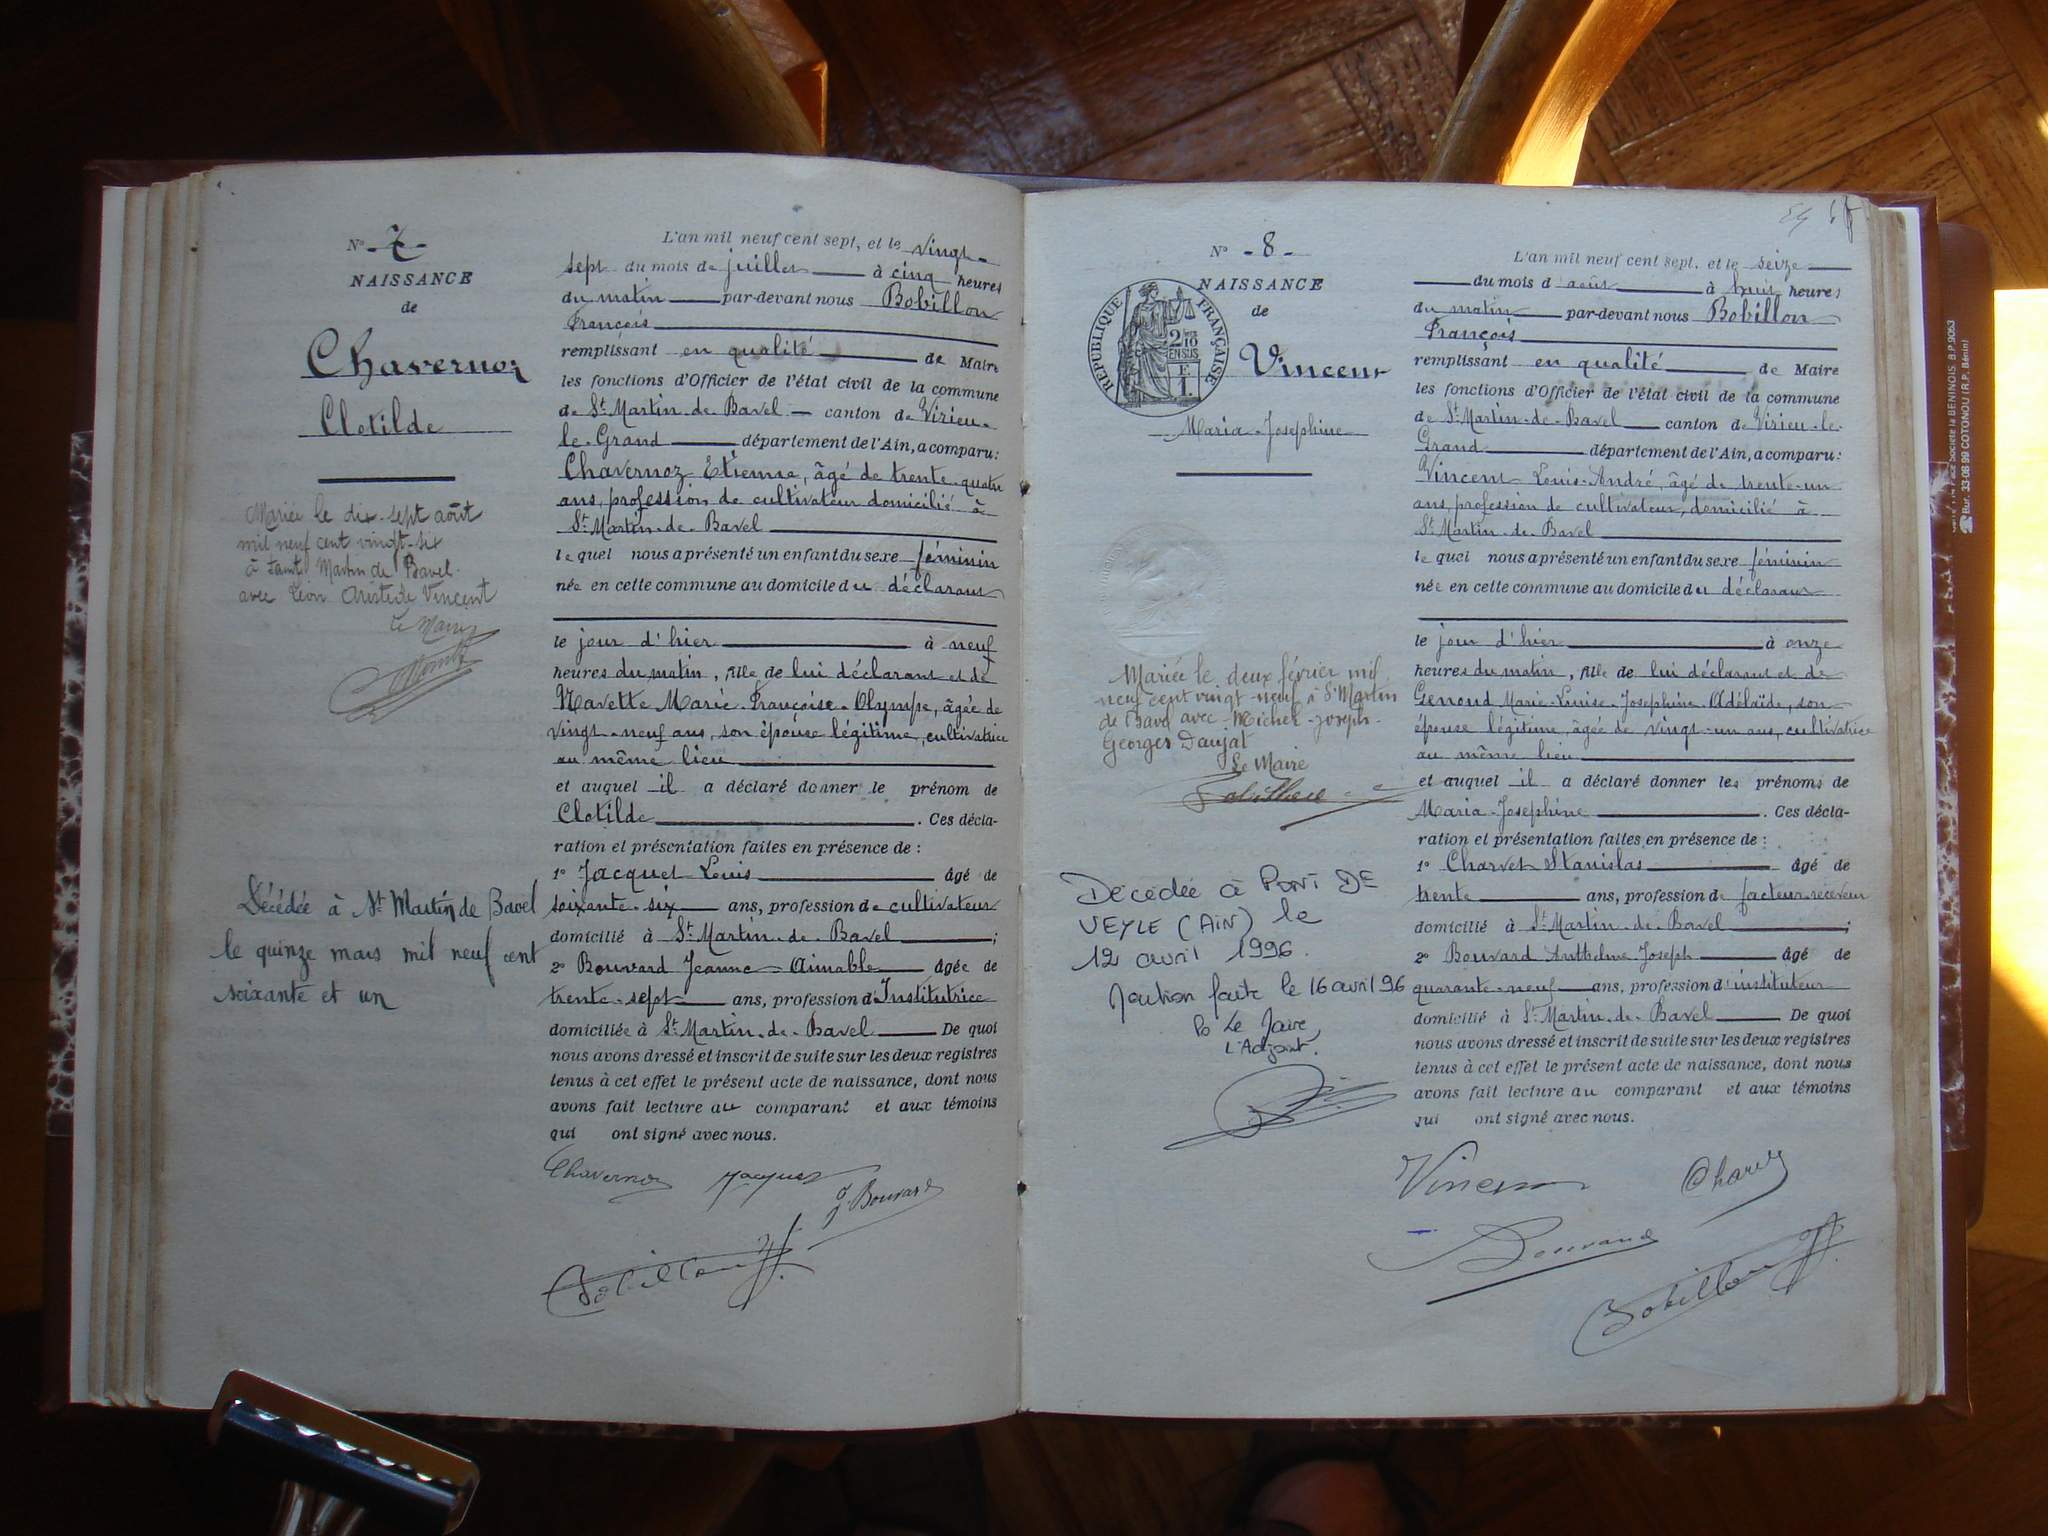 N° 7
NAISSANCE
de
Chavernoz
Clotilde
Mariée le dix-sept août
mil neuf cent vingt-six
à Saint Martin de Bavel
avec Léon Aristide Vincent
Le Maire
Décédée à St Martin de Bavel
le quinze mars mil neuf cent
soixante et un
L'an mil neuf cent sept, et le vingt-
sept du mois de juillet à cinq heures
du matin par-devant nous Bobillon
François
remplissant en qualité de Maire
les fonctions d'Officier de l'état civil de la commune
de St Martin-de-Bavel canton de Virieu-
le-Grand département de l'Ain, a comparu:
Chavernoz Etienne, âgé de trente-quatre
ans, profession de cultivateur domicilié à
St Martin-de-Bavel
lequel nous a présenté un enfant du sexe féminin
née en cette commune au domicile du déclarant
le jour d'hier à neuf
heures du matin, fille de lui déclarant et de
Navette Marie-Françoise-Olympe, âgée de
vingt-neuf ans, son épouse légitime, cultivatrice
au même lieu
et auquel il a déclaré donner le prénom de
Clotilde. Ces décla-
ration et présentation faites en présence de :
1° Jacquet Louis âgé de
soixante-six ans, profession de cultivateur
domicilié à St Martin-de-Bavel ;
2° Bouvard Jeanne-Aimable âgée de
trente-sept ans, profession d'Institutrice
domiciliée à St Martin-de-Bavel De quoi
nous avons dressé et inscrit de suite sur les deux registres
tenus à cet effet le présent acte de naissance, dont nous
avons fait lecture au comparant et aux témoins
qui ont signé avec nous.
Chavernoz Jacquet
J. Bouvard
Bobillon
N° 8
NAISSANCE
de
RÉPUBLIQUE FRANÇAISE
2/10 EN SUS
E
1
Vincent
Maria-Josephine
Mariée le deux février mil
neuf cent vingt-neuf à St Martin
de Bavel avec Michel-Joseph-
Georges Daujat
Le Maire
Décédée à PONT DE
VEYLE (AIN) le
12 avril 1996.
le 16 avril 96
L'Adjoint.
L'an mil neuf cent sept, et le seize
du mois d'août à huit heures
du matin par-devant nous Bobillon
François
remplissant en qualité de Maire
les fonctions d'Officier de l'état civil de la commune
de St Martin-de-Bavel canton de Virieu-le-
Grand département de l'Ain, a comparu:
Vincent Louis-André, âgé de trente-un
ans, profession de cultivateur, domicilié à
St Martin-de-Bavel
lequel nous a présenté un enfant du sexe féminin
née en cette commune au domicile du déclarant
le jour d'hier à onze
heures du matin, fille de lui déclarant et de
Genoud Marie-Louise-Josephine-Adélaïde, son
épouse légitime, âgée de vingt-un ans, cultivatrice
au même lieu
et auquel il a déclaré donner les prénoms de
Maria-Josephine. Ces décla-
ration et présentation faites en présence de :
1° Charvet Stanislas âgé de
trente ans, profession de facteur-receveur
domicilié à St Martin-de-Bavel ;
2° Bouvard Anthelme-Joseph âgé de
quarante-neuf ans, profession d'instituteur
domicilié à St Martin-de-Bavel De quoi
nous avons dressé et inscrit de suite sur les deux registres
tenus à cet effet le présent acte de naissance, dont nous
avons fait lecture au comparant et aux témoins
qui ont signé avec nous.
Vincent Charvet
Bouvard
Bobillon